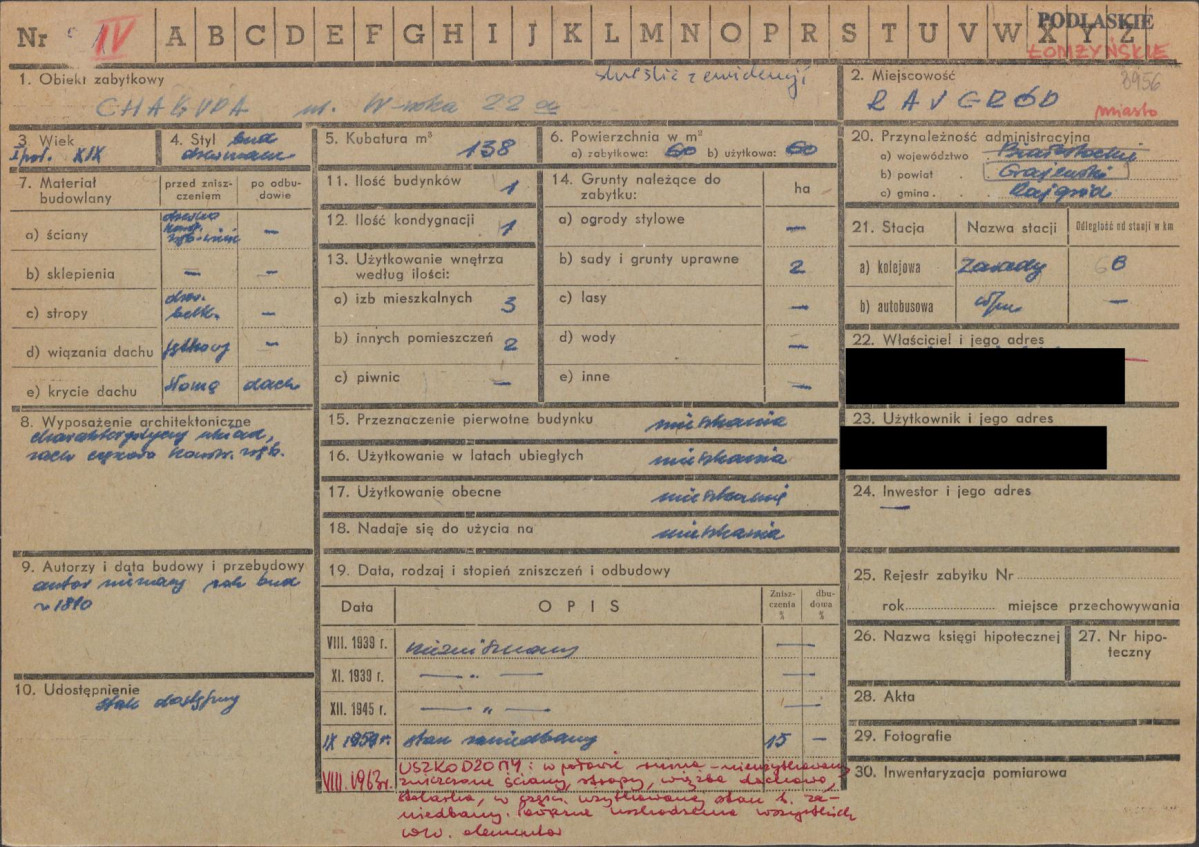 Nr IV A B C D E F G H I J K L M N O P R S T U V W X Y Z
PODLASKIE
ŁOMŻYŃSKIE
1. Obiekt zabytkowy
skreślić z ewidencji
CHAŁUPA ul. 22
2. Miejscowość
8956
RAJGRÓD
miasto
3. Wiek
I poł. XIX
4. Styl bud
drewniane
5. Kubatura m³ 138
6. Powierzchnia w m²
a) zabytkowa: 60 b) użytkowa: 60
20. Przynależność administracyjna
a) województwo Białostockie
b) powiat Grajewski
c) gmina Rajgród
7. Materiał budowlany
przed zniszczeniem
po odbudowie
a) ściany drewno konstr. —
b) sklepienia — —
c) stropy drew. belk. —
d) wiązania dachu —
e) krycie dachu słomą dach
11. Ilość budynków 1
12. Ilość kondygnacji 1
13. Użytkowanie wnętrza
według ilości:
a) izb mieszkalnych 3
b) innych pomieszczeń 2
c) piwnic —
14. Grunty należące do
zabytku:
ha
a) ogrody stylowe —
b) sady i grunty uprawne 2
c) lasy —
d) wody —
e) inne —
21. Stacja Nazwa stacji Odległość od stacji w km
a) kolejowa
b) autobusowa —
22. Właściciel i jego adres
23. Użytkownik i jego adres
8. Wyposażenie architektoniczne
charakterystyczny układ,
15. Przeznaczenie pierwotne budynku mieszkania
16. Użytkowanie w latach ubiegłych mieszkania
17. Użytkowanie obecne mieszkanie
18. Nadaje się do użycia na mieszkania
24. Inwestor i jego adres
—
9. Autorzy i data budowy i przebudowy
autor nieznany rok bud
10. Udostępnienie
stale dostępny
19. Data, rodzaj i stopień zniszczeń i odbudowy
Data OPIS Zniszczenia % dbudowa %
VIII. 1939 r. niezniszczony —
XI. 1939 r. — „ — —
XII. 1945 r. — „ — —
IX 1959 r. stan zaniedbany 15 —
VIII. 1963 r. USZKODZONY: w połowie ruina - nieużytkowany
zniszczone ściany, stropy, więźba dachowa,
stolarka, w części użytkowanej stan b. za-
niedbany. uszkodzenia wszystkich
w/w. elementów
25. Rejestr zabytku Nr
rok miejsce przechowywania
26. Nazwa księgi hipotecznej
27. Nr hipoteczny
28. Akta
29. Fotografie
30. Inwentaryzacja pomiarowa